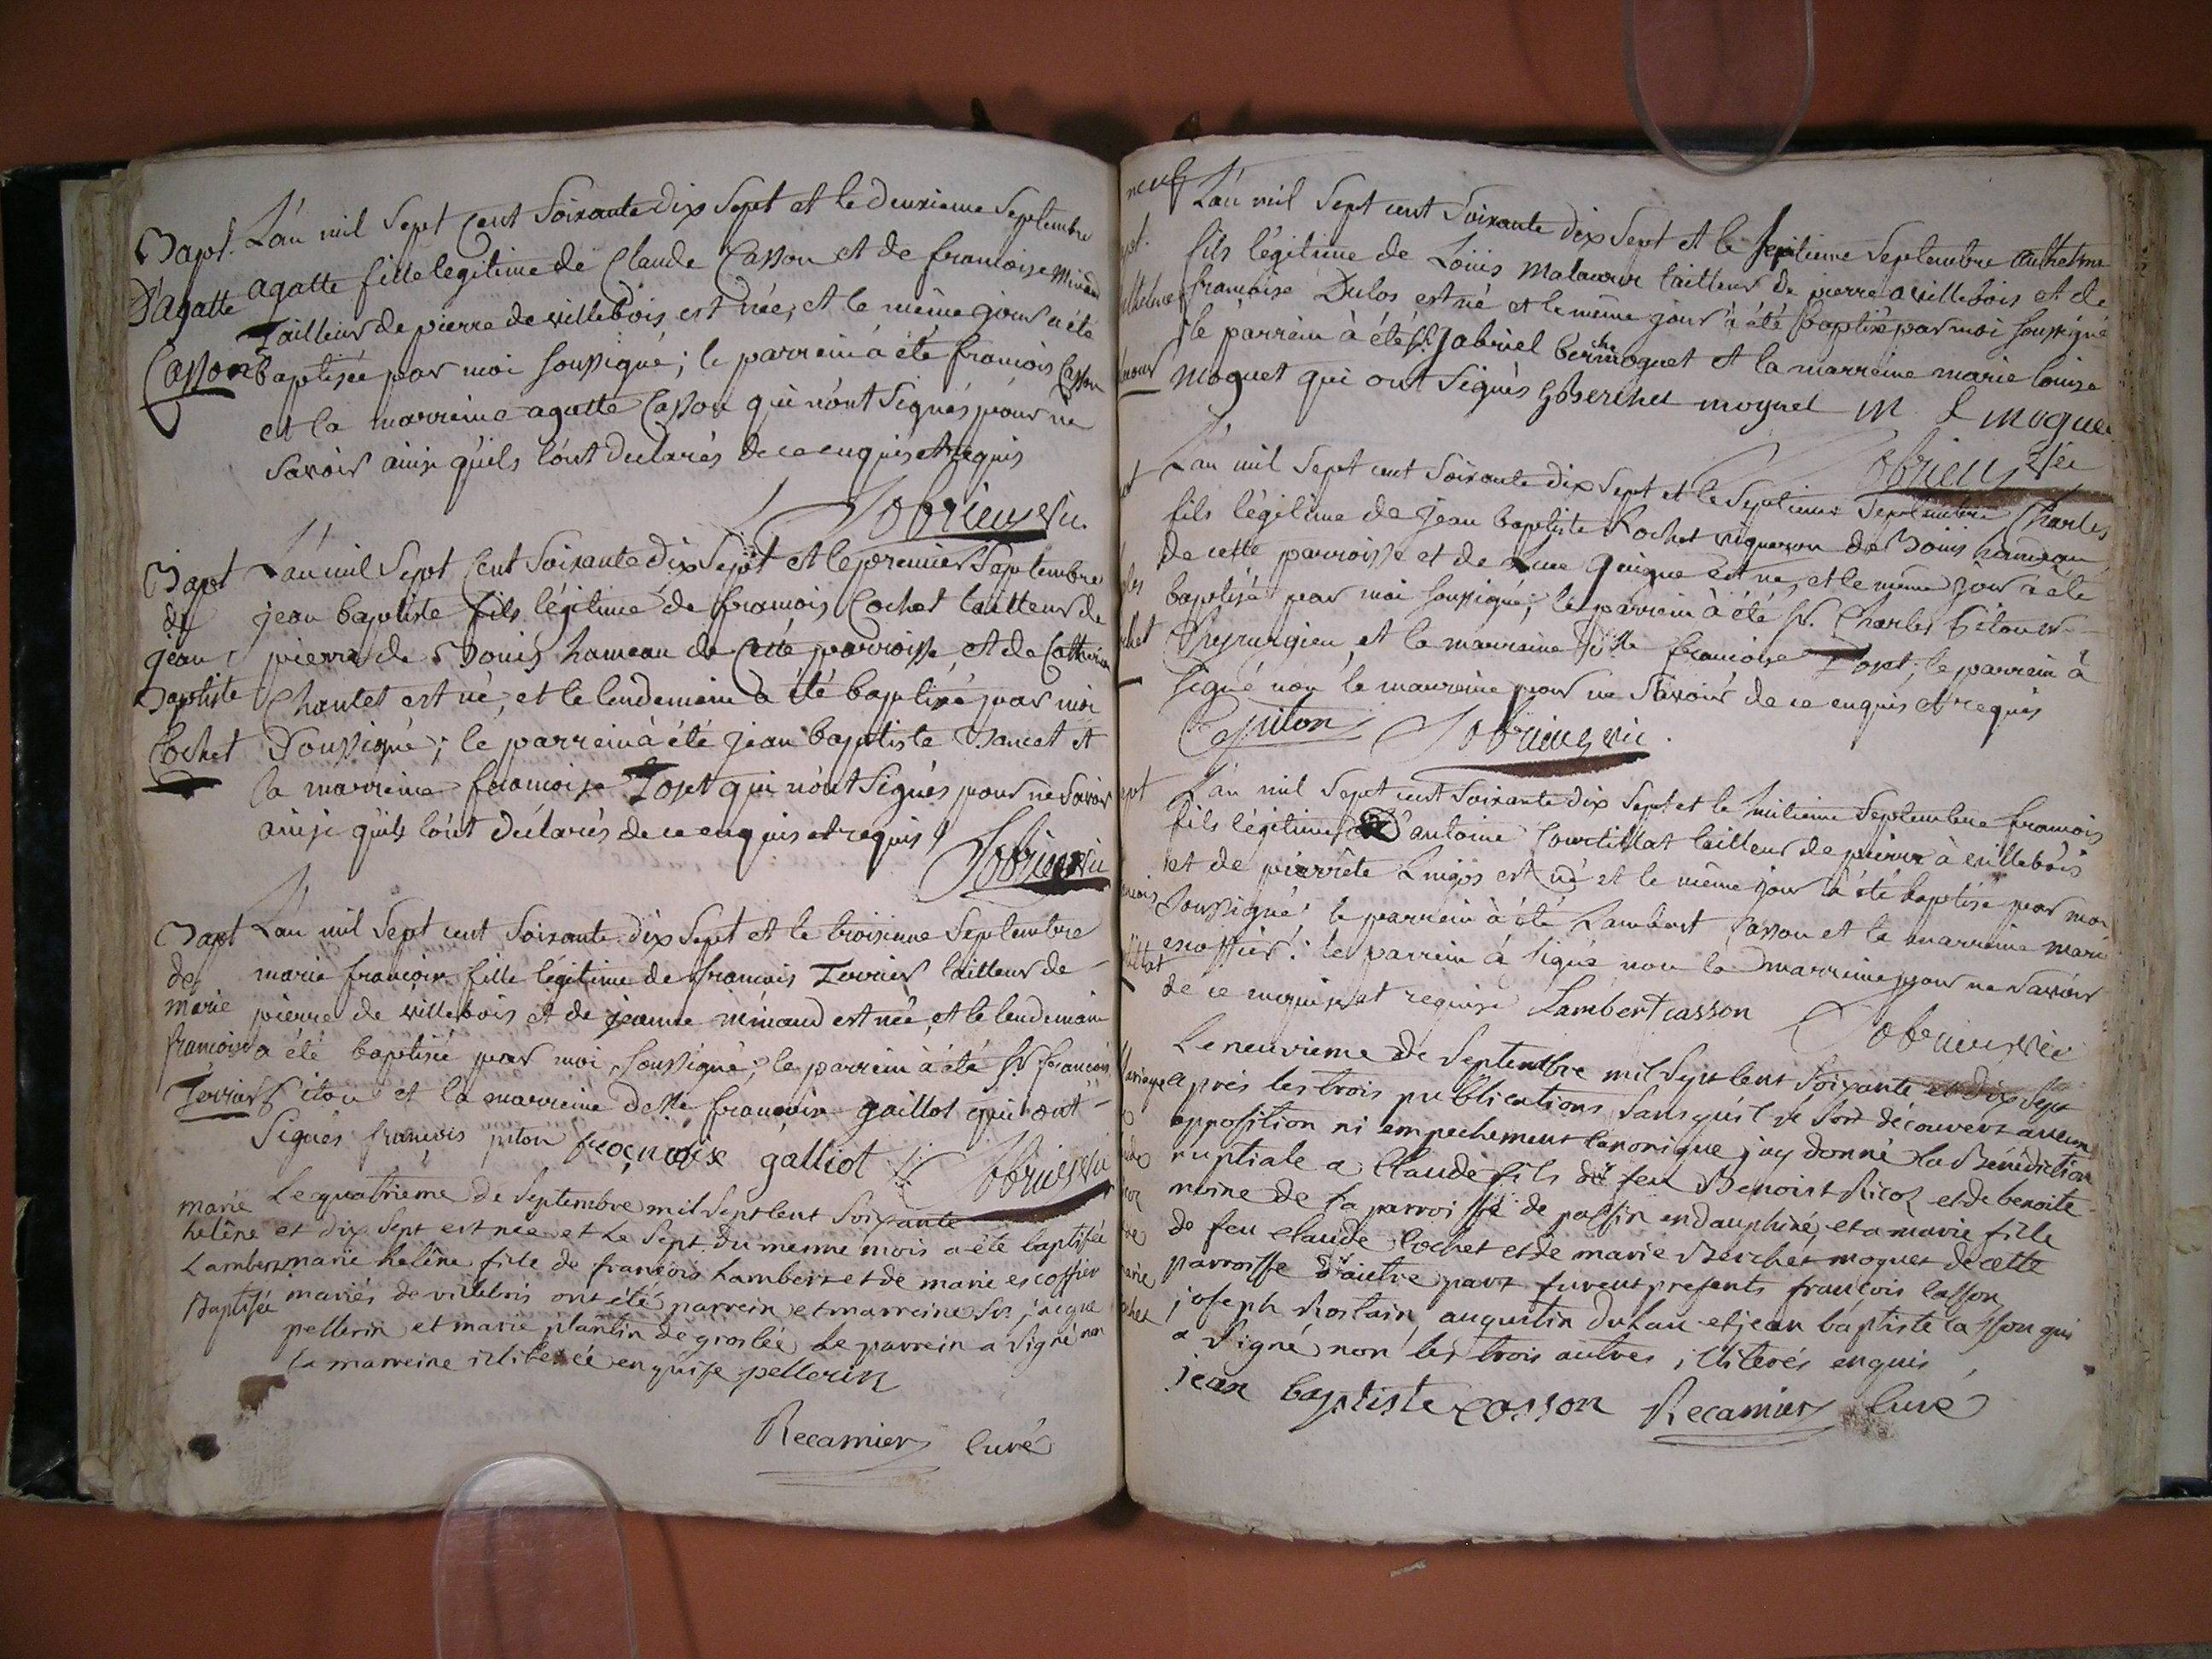 Bapt. L'an mil Sept Cent Soixante dix Sept et le deuxieme Septembre
D'agatte agatte fille legitime de Claude Casson et de francoise minand
Tailleur de pierre de villebois est née, et le même jour a été
Casson baptisée par moi soussigné; le parrein a été francois Casson
et la marreine agatte Casson qui n'ont Signés pour ne
Savoir ainsi qu'ils l'ont declarés de ce enquis et requis
vic.
Bapt L'an mil Sept Cent Soixante dix Sept et le premier Septembre
de jean baptiste fils légitime de francois Cochet tailleur de
jean pierre de Bouis hameau de cette parroisse, et de Catherine
Baptiste Chantet est né, et le lendemain a été baptisé par moi
Cochet Soussigné; le parrein à été jean baptiste et
la marreine francoise qui n'ont Signés pour ne Savoir
ainsi qu'ils l'ont declarés de ce enquis et requis
vic
Bapt L'an mil Sept cent Soixante dix Sept et le troisieme Septembre
de marie francoise fille légitime de francois Terrier tailleur de
Marie pierre de villebois et de jeanne minaud est née, et le lendemain
francoise a été baptisée par moi soussigné; le parrein à été Sr francois
Terrier Piton et la marreine delle francoise gaillot qui ont
Signés françois piton galliot vic
marie Le quatrieme de Septembre mil Sept Cent Soixante
helêne et dix Sept est née et Le Sept du meme mois a été baptisée
Lambert marie helêne fille de françois Lambert et de marie escoffier
Baptisée mariés de villebois ont été parrein et marreine Sr jacque
pellerin et marie plantin de groslée Le parrein a Signé non
la marreine illiterée enquise pellerin
Recamier Curé
L'an mil Sept cent Soixante dix Sept et le Septieme Septembre anthelme
fils légitime de Louis Malacour tailleur de pierre a villebois et de
francoise Dulos est né et le même jour a été baptisé par moi soussigné
le parrein à été Sr. gabriel berchemoquet et la marreine marie louise
Moquet qui ont Signés G Berchet moquet M L moquet
vic
L'an mil Sept cent Soixante dix Sept et le Septieme Septembre Charles
fils légitime de jean baptiste Rochet vigneron de Bouis hameau
de cette parroisse et de est né, et le même jour a été
baptisé par moi soussigné; le parrein à été Sr. Charles Piton
Chyrurgien, et la marreine delle francoise; le parrein à
Signé non la marreine pour ne Savoir de ce enquis et requis
Piton vic.
L'an mil Sept cent Soixante dix Sept et le huitieme Septembre francois
fils légitime d'antoine Courtillat tailleur de pierre à villebois
et de pierrête est né et le même jour à été baptisé par moi
Soussigné; le parrein à été Lambert Casson et la marreine marie
escoffier: le parrein à Signé non la marreine pour ne Savoir
de ce enquise et requise Lambert casson vic
Le neuvieme de Septembre mil Sept Cent Soixante et dix Sept
après les trois publications, Sans qu'il se Soit découvert aucune
opposition ni empechement Canonique j'ay donné la Bénédiction
nuptiale a Claude fils de feu Benoist Ricoz et de benoite
moine de la parroisse de passin en dauphiné, et a marie fille
de feu Claude Cochet et de marie Berchet moquet de cette
parroisse d'autre part furent presents françois Casson
joseph Rostain, augustin Duhau et jean baptiste Casson qui
a Signé non les trois autres illiterés enquis
jean baptiste casson Recamier Curé